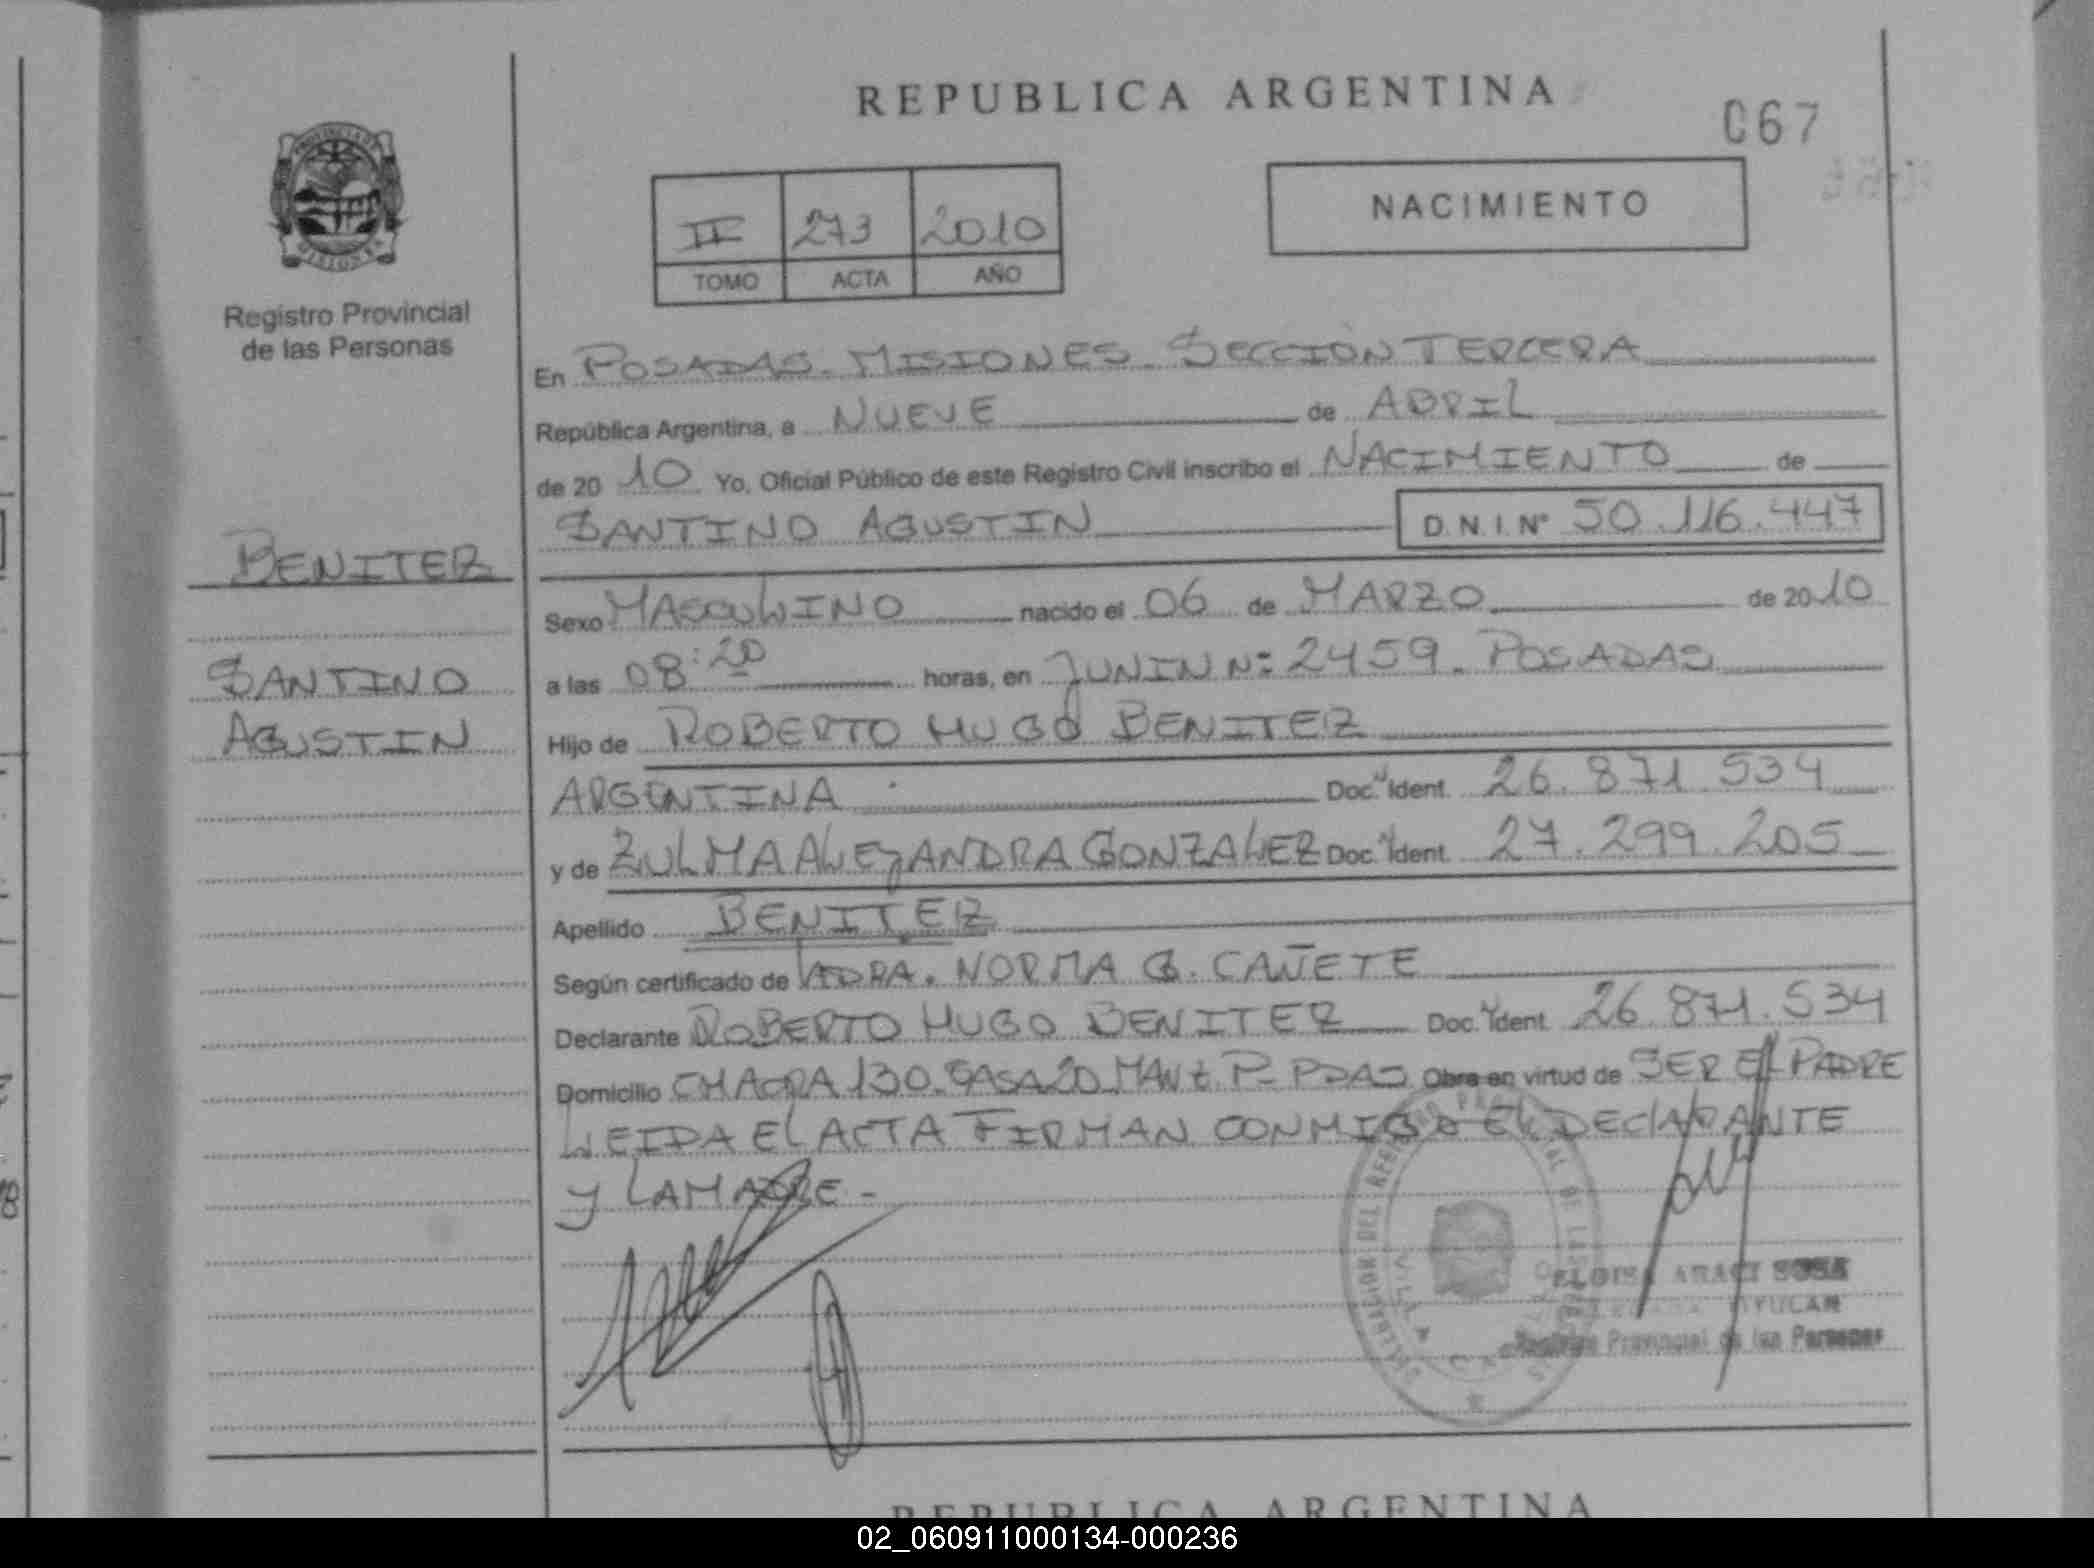 REPUBLICA ARGENTINA
067
II 273 2010
TOMO ACTA AÑO
NACIMIENTO
Registro Provincial
de las Personas
En POSADAS. MISIONES. SECCION TERCERA
República Argentina, a NUEVE de ABRIL
de 2010 Yo, Oficial Público de este Registro Civil inscribo el NACIMIENTO de
SANTINO AGUSTIN D.N.I. Nº 50.116.447
BENITEZ
SANTINO
AGUSTIN
Sexo MASCULINO nacido el 06 de MARZO de 2010
a las 08:20 horas, en JUNIN Nº 2459. POSADAS
Hijo de ROBERTO HUGO BENITEZ
ARGENTINA Doc. Ident. 26.871.534
y de ZULMA ALEJANDRA GONZALEZ Doc. Ident. 27.299.205
Apellido BENITEZ
Según certificado de NORMA G. CAÑETE
Declarante ROBERTO HUGO BENITEZ Doc. Ident. 26.871.534
Domicilio CHACRA 130. CASA 20. MANZ P- PDAS Obra en virtud de SER EL PADRE
LEIDA EL ACTA FIRMAN CONMIGO EL DECLARANTE
Y LA MADRE -
ELOISA ARACI SOSA
TITULAR
Registro Provincial de las Personas
REPUBLICA ARGENTINA
02_060911000134-000236